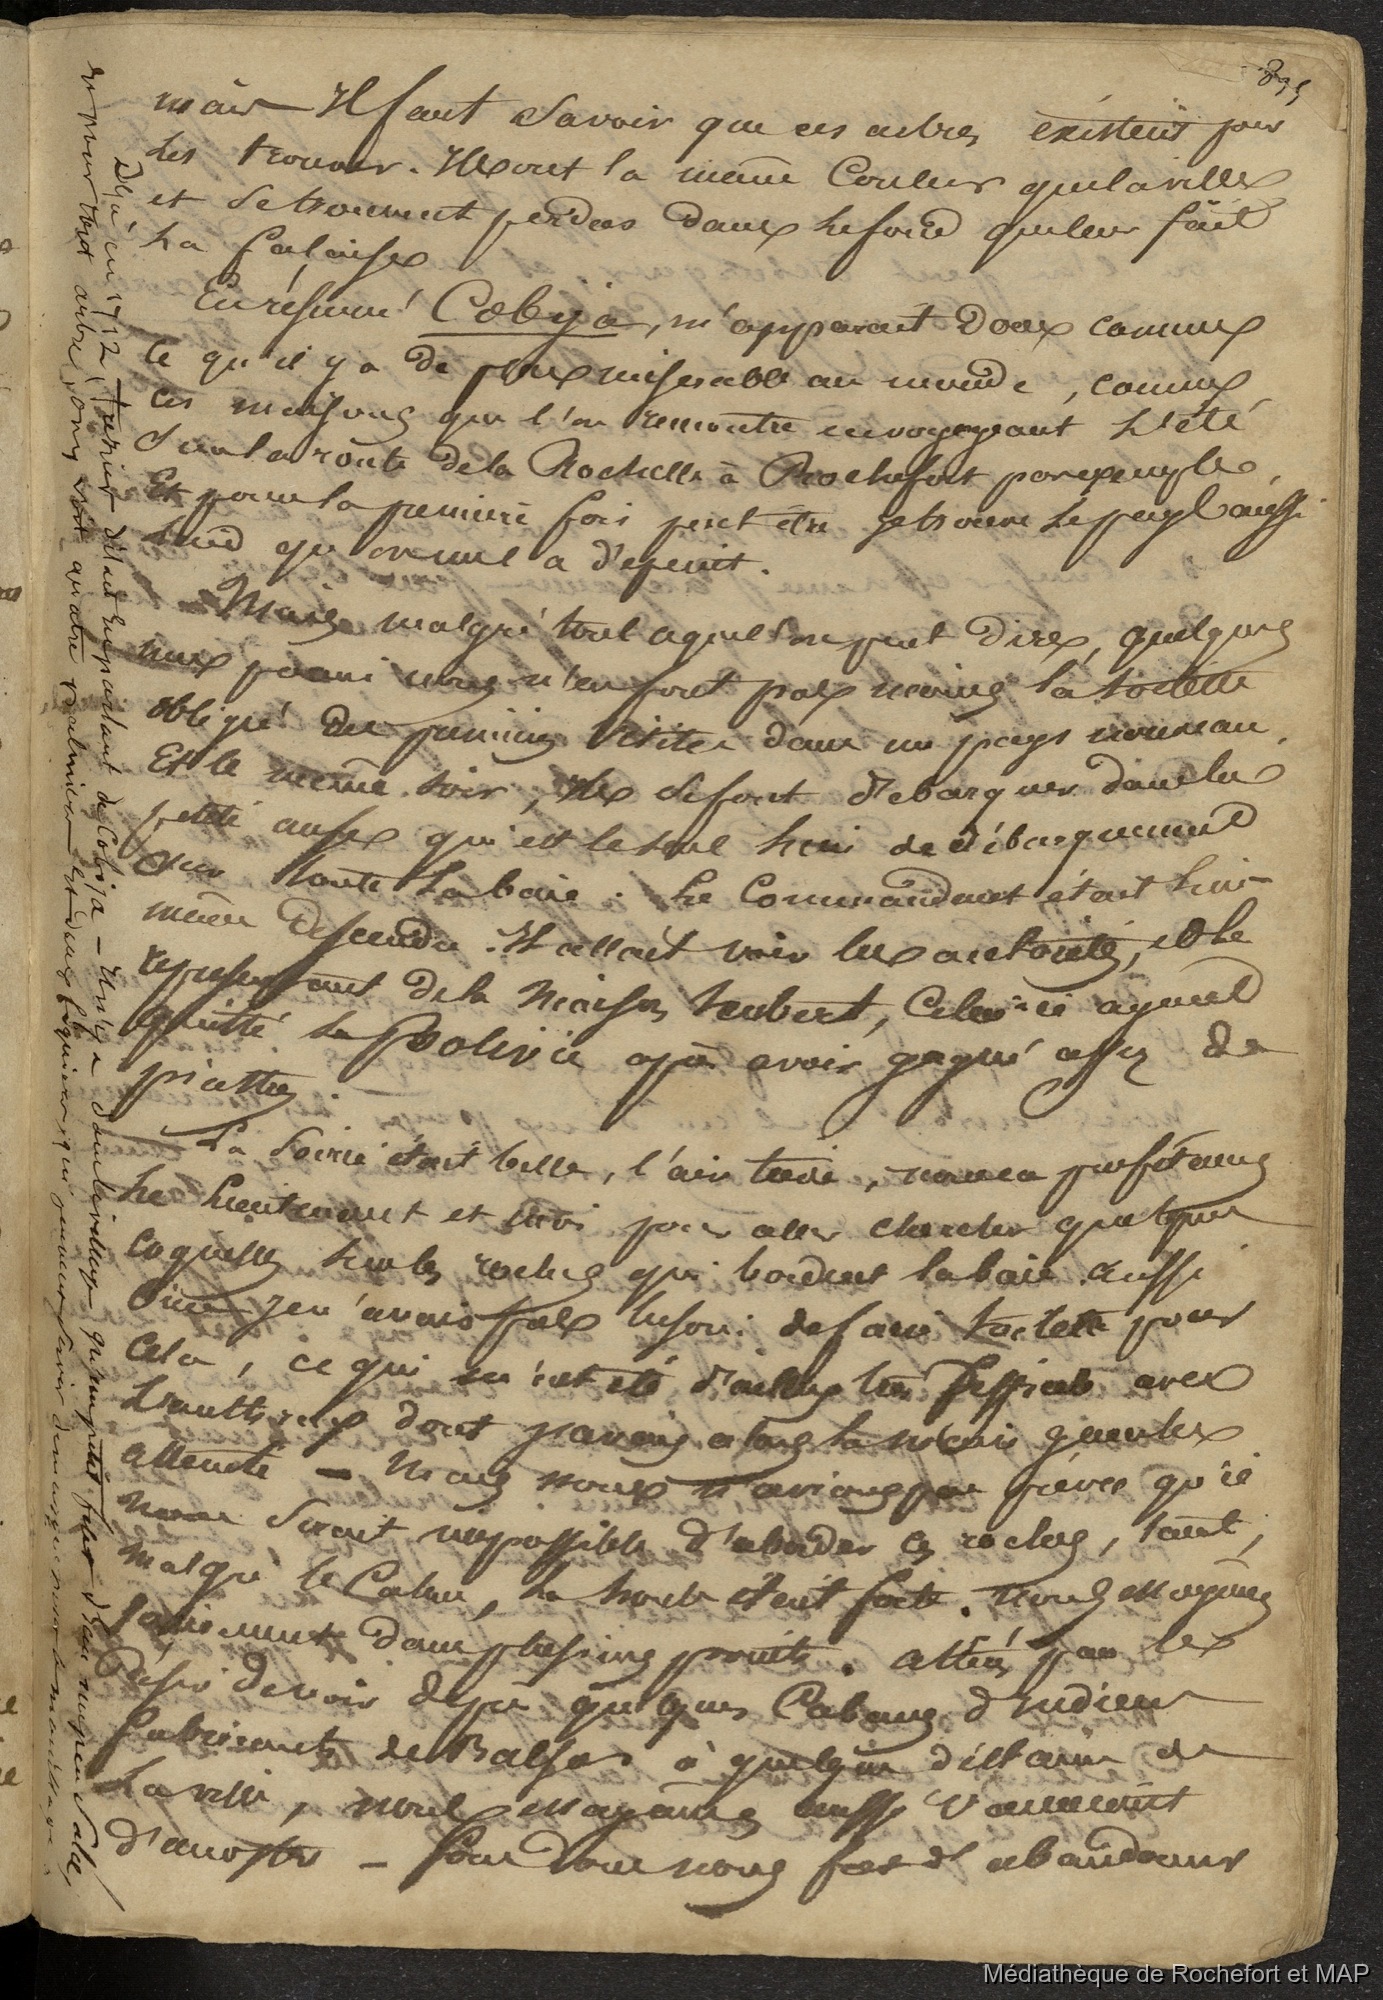 835
mais Il faut savoir que ces arbres existent pour
les trouver. Ils ont la même couleur que la ville
et se trouvent perdus dans le fond que leur fait
la falaise
En résumé Cobija, m'apparait donc comme
ce qu'il y a de plus miserable au monde, comme
ces maisons que l'on rencontre en voyageant l'été
sur la route de la Rochelle à Rochefort par exemple
Et pour la première fois peut être je trouve le pays aussi
laid qu'on me l'a depeint.
Mais malgré tout ce que l'on peut dire, quelques
uns parmi nous n'en font pas moins la toilette
obligée des premières visites dans un pays nouveau.
Et le même soir, ils se font debarquer dans la
petite anse qui est le seul lieu de débarquement
sur toute la baie. Le Commandant était lui
même descendu. Il allait voir les autorités, et le
représentant de la Maison Hubert, Celui-ci ayant
quitté la Bolivie après avoir gagné assez de
piastres.
La soirée était belle, l'air tiède, nous en profitames
le lieutenant et moi pour aller chercher quelques
coquilles sur les roches qui bordent la baie. Aussi
bien je n'avais pas besoin de faire toilette pour
cela, ce qui m'eut été d'ailleurs très difficile avec
dont
attente — Mais nous n'avions pas prévu qu'il
nous serait impossible d'aborder ces roches, tant,
malgré le Calme, la houle était forte. Nous essayames
vainement dans plusieurs points. Attirés par le
désir de voir de près quelques Cabanes d'Indiens
fabricants de Balsas à quelque distance de
la ville, nous essayames aussi vainement
d'accoster — force donc nous fut d'abandonner
Déjà en 1712, Frezier disait en parlant de Cobija — Il n'y a dans le village qu'un petit filet d'eau un peu salée
et pour tout arbre, on y voit quatre palmiers et deux figuiers qui peuvent servir de marque pour le mouillage.
Médiathèque de Rochefort et MAP